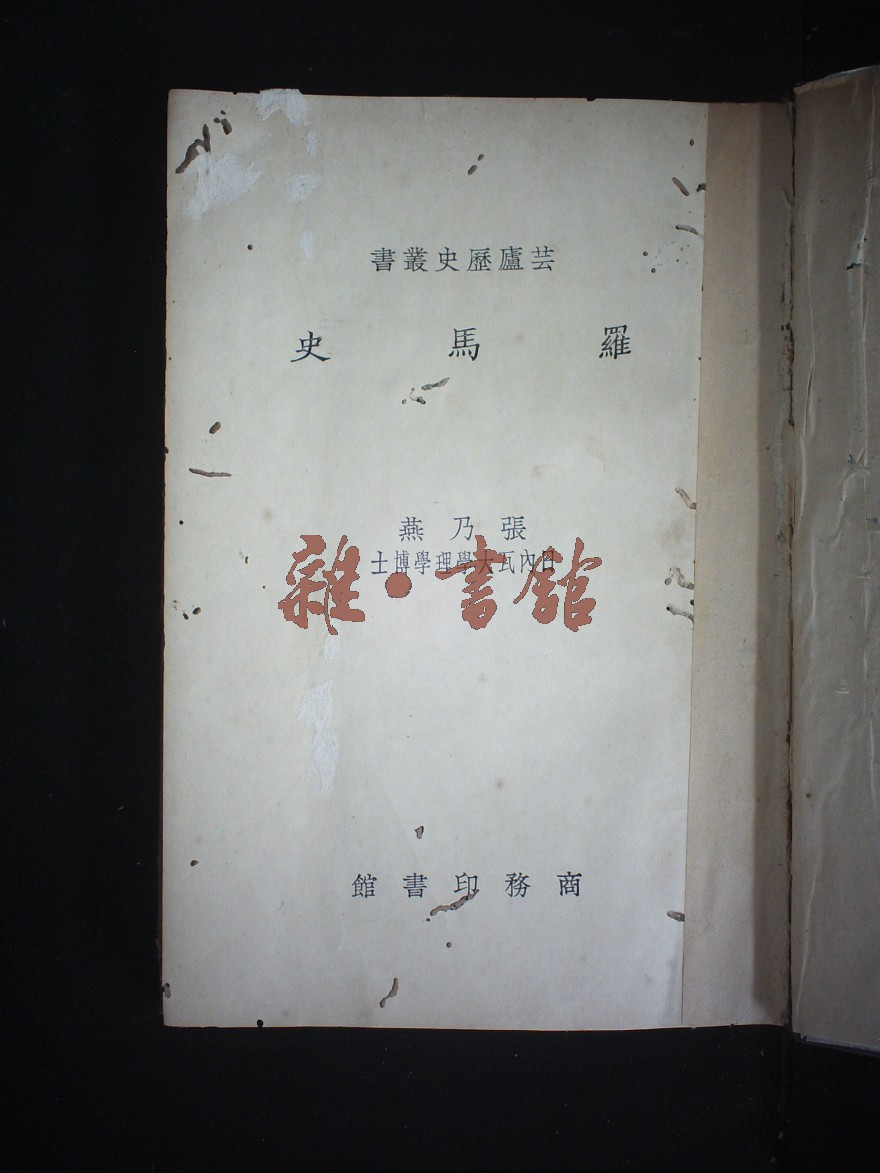 芸廬歷史叢書
羅馬史
張乃燕
日內瓦大學理學博士
雜·書館
商務印書館